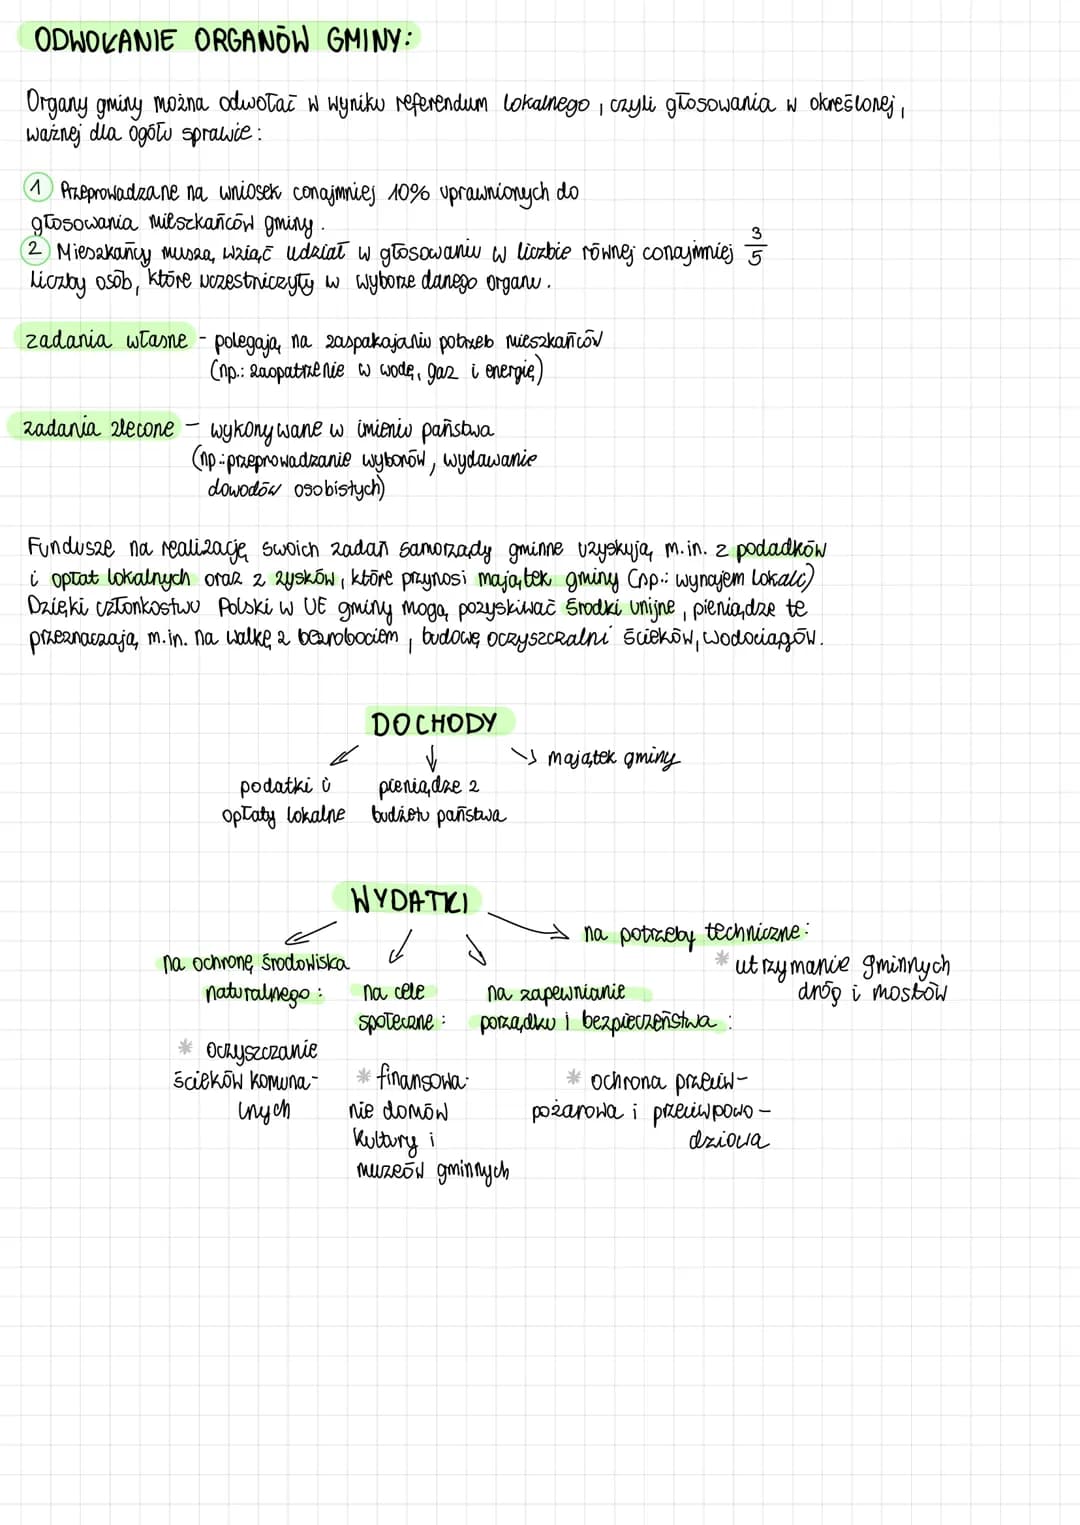 ODWOŁANIE ORGANÓW GMINY:
Organy gminy można odwołać w wyniku referendum lokalnego, czyli głosowania w określonej,
ważnej dla ogółu sprawie:
1 Przeprowadzane na wniosek conajmniej 10% uprawnionych do
głosowania mieszkańców gminy.
2 Mieszkańcy muszą wziąć udział w głosowaniu w liczbie równej conajmniej 3/5
liczby osób, które uczestniczyły w wyborze danego organu.
zadania własne - polegają na zaspakajaniu potrzeb mieszkańców
(np.: zaopatrzenie w wodę, gaz i energię)
zadania zlecone - wykonywane w imieniu państwa
(np.: przeprowadzanie wyborów, wydawanie
dowodów osobistych)
Fundusze na realizację swoich zadań samorządy gminne uzyskują m.in. z podadków
i opłat lokalnych oraz z zysków, które przynosi majątek gminy (np.: wynajem lokali)
Dzięki członkostwu Polski w UE gminy mogą pozyskiwać środki unijne, pieniądze te
przeznaczają m.in. na walkę z bezrobociem, budowę oczyszczalni ścieków, wodociągów.
DOCHODY
majątek gminy
podatki i pieniądze z
opłaty lokalne budżetu państwa
WYDATKI
na potrzeby techniczne:
* utrzymanie gminnych
dróg i mostów
na ochronę środowiska
naturalnego:
* oczyszczanie
ścieków komuna-
lnych
na cele
społeczne:
* finansowa-
nie domów
kultury i
muzeów gminnych
na zapewnianie
porządku i bezpieczeństwa:
* ochrona przeciw-
pożarowa i przeciwpowo-
dziowa